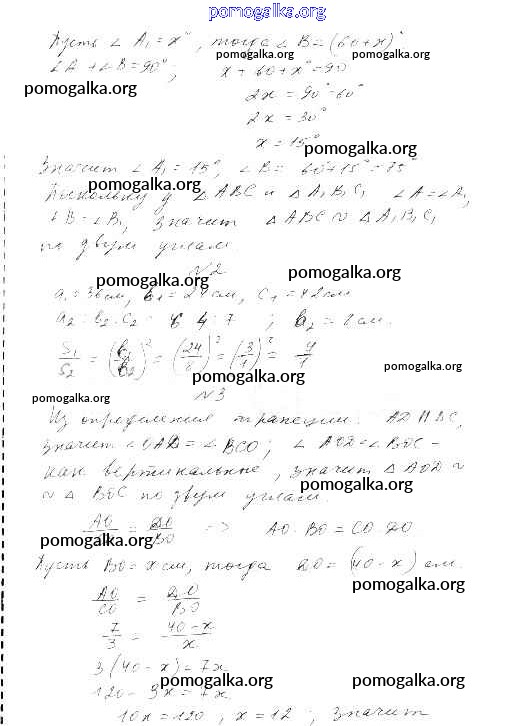 pomogalka.org
Пусть ∠ A₁ = x°, тогда ∠ B = (60+x)°
pomogalka.org pomogalka.org
∠A + ∠B = 90°; x + 60 + x° = 90
pomogalka.org
2x = 90° - 60°
2x = 30°
x = 15°
pomogalka.org
Значит ∠ A₁ = 15°, ∠ B = 60+15° = 75°
pomogalka.org
Поскольку у △ABC и △A₁B₁C₁ ∠A = ∠A₁,
∠B = ∠B₁, значит △ABC ~ △A₁B₁C₁
по двум углам.
№2
pomogalka.org pomogalka.org
a₁ = 36 см, b₁ = 24 см, c₁ = 42 см
a₂ : b₂ : c₂ : 6 4 : 7 ; b₂ = 8 см.
S₁/S₂ = (b₁/b₂)² = (24/8)² = (3/1)² = 9/1
pomogalka.org
pomogalka.org
№3
pomogalka.org
Из определения трапеции. AD || BC,
значит ∠OAD = ∠BCO; ∠ AOD = ∠BOC -
как вертикальные, значит △ AOD ~
~ △ BOC по двум углам.
pomogalka.org
AO/ = DO/BO => AO · BO = CO DO
pomogalka.org
Пусть BO = x см, тогда DO = (40 - x) см.
pomogalka.org
AO/CO = DO/BO
7/3 = 40-x/x
3(40 - x) = 7x
pomogalka.org pomogalka.org
120 - 3x = 7x
10x = 120, x = 12; значит